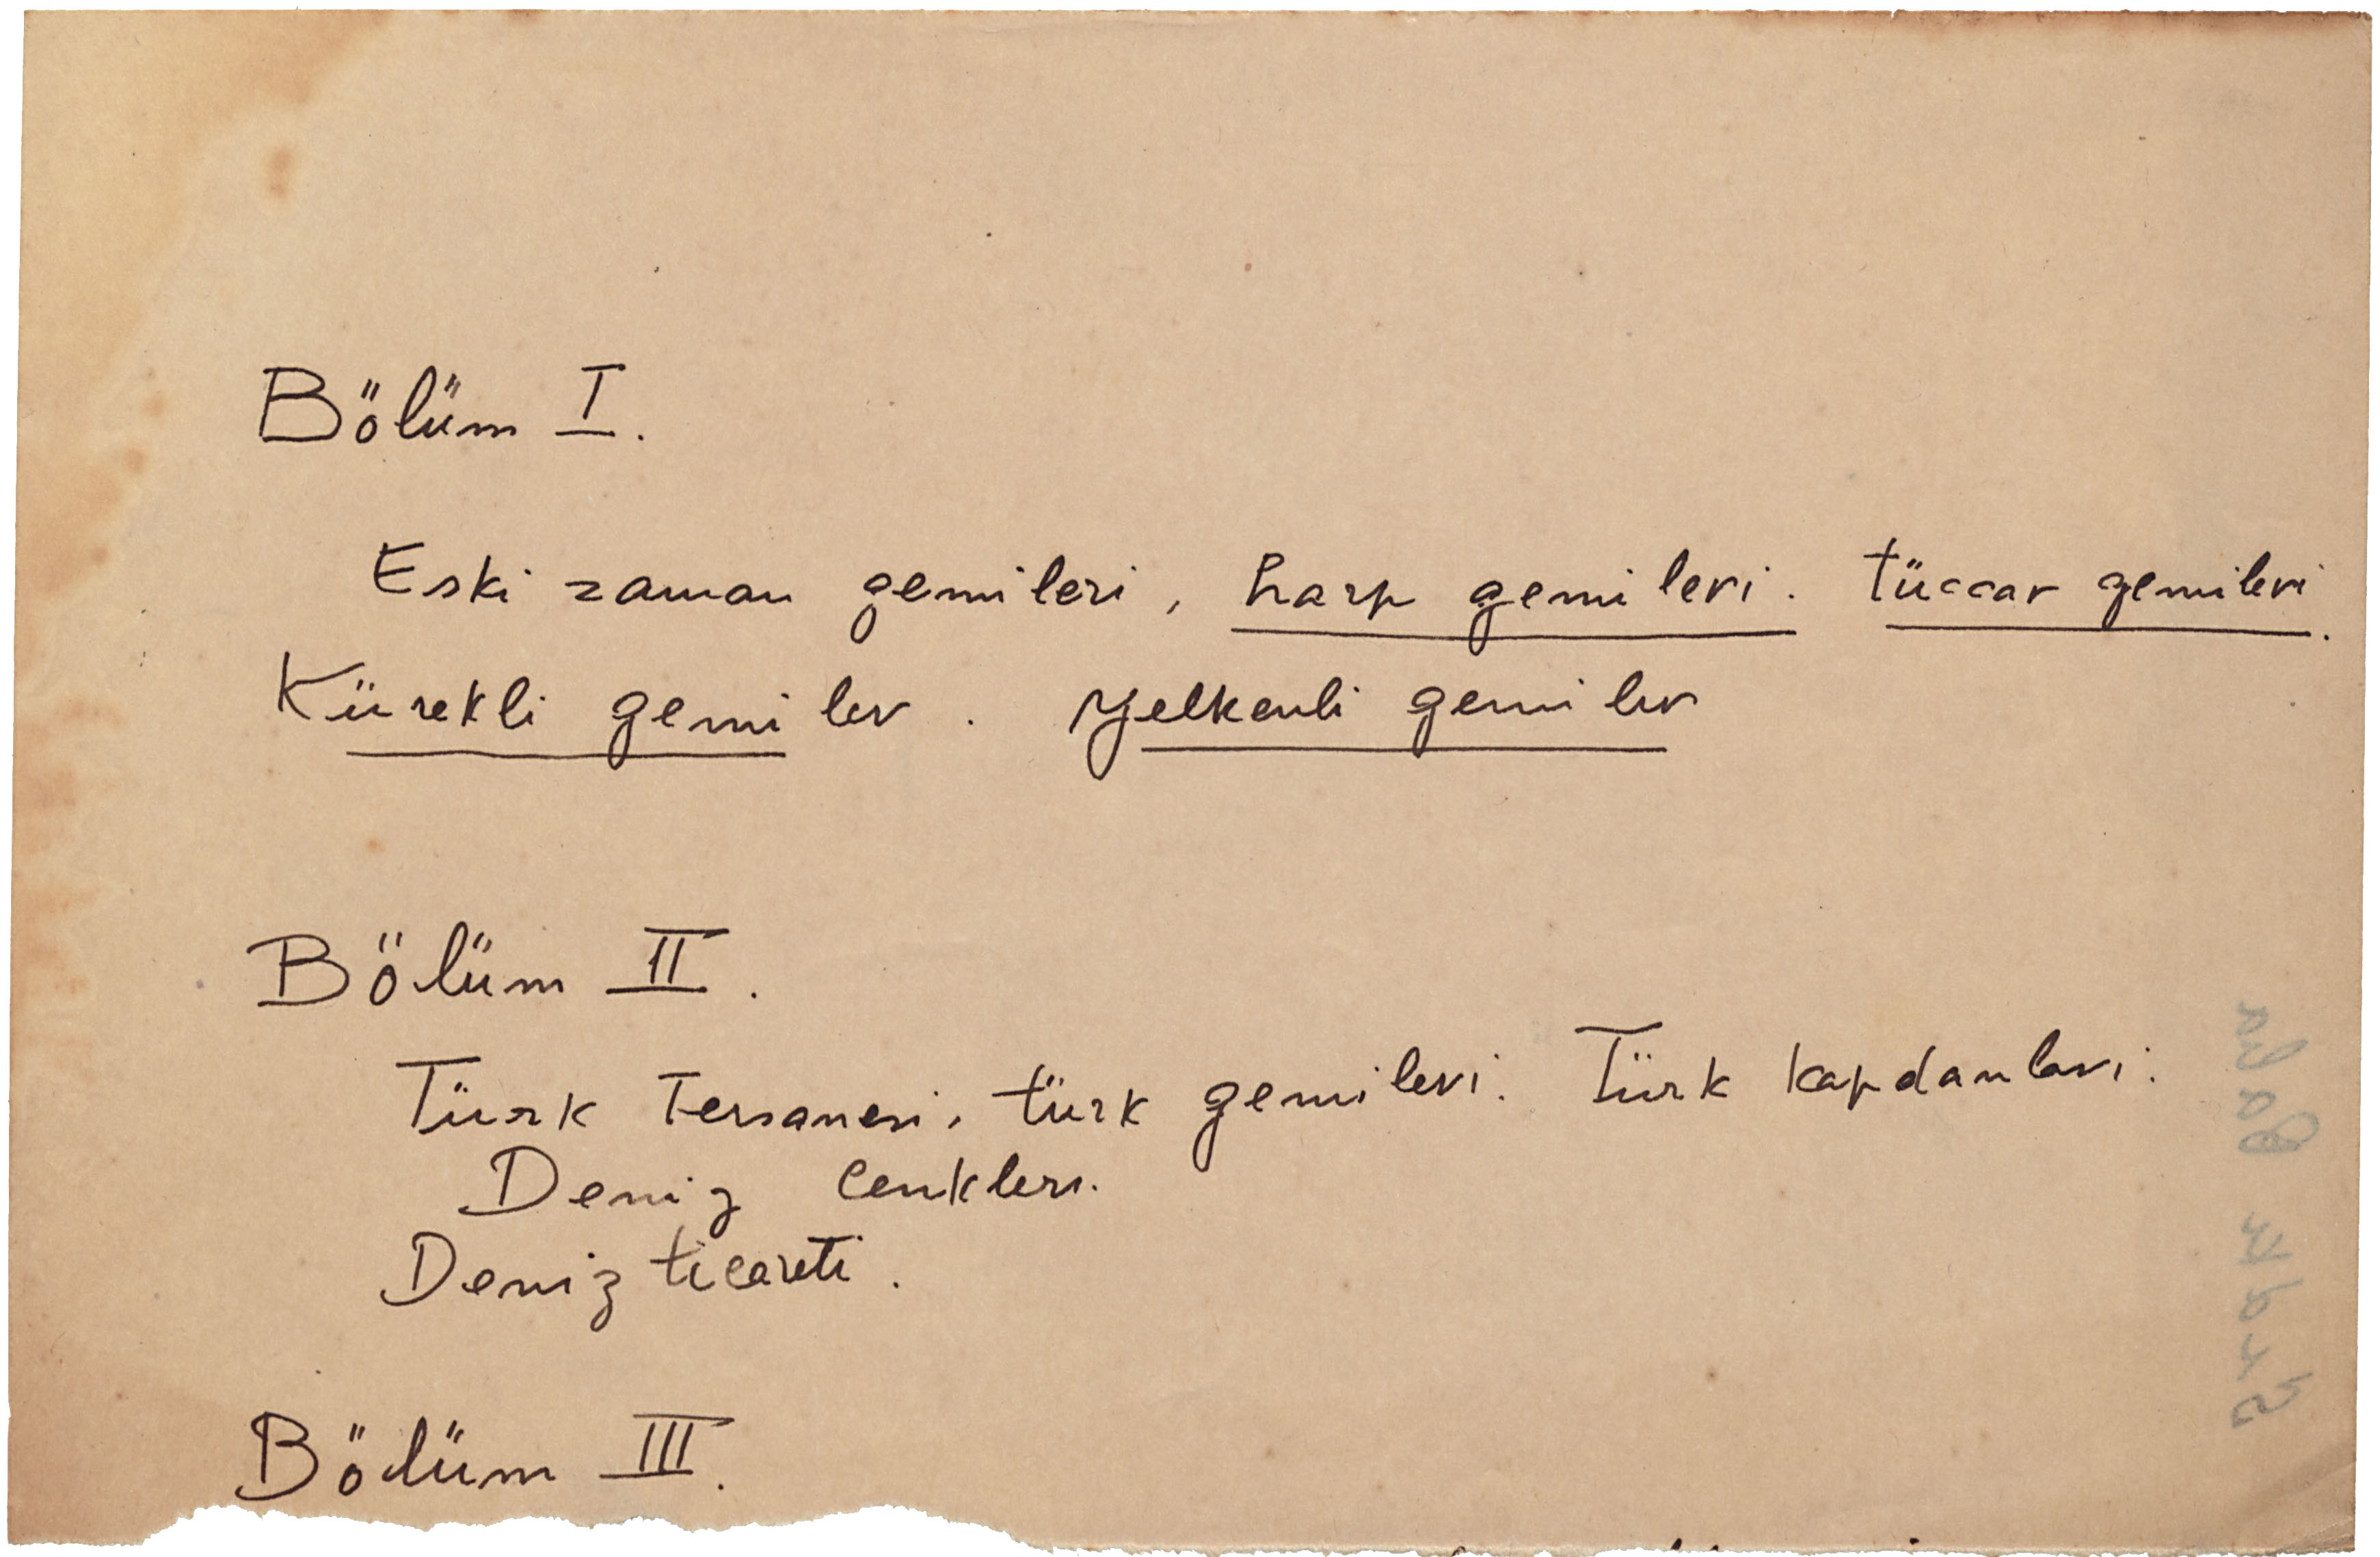 Bölüm I.
Eski zaman gemileri, harp gemileri. tüccar gemileri.
Kürekli gemiler. yelkenli gemiler
Bölüm II.
Türk Tersanesi, türk gemileri. Türk kapdanları.
Deniz Cenkleri.
Deniz ticareti.
Bölüm III.